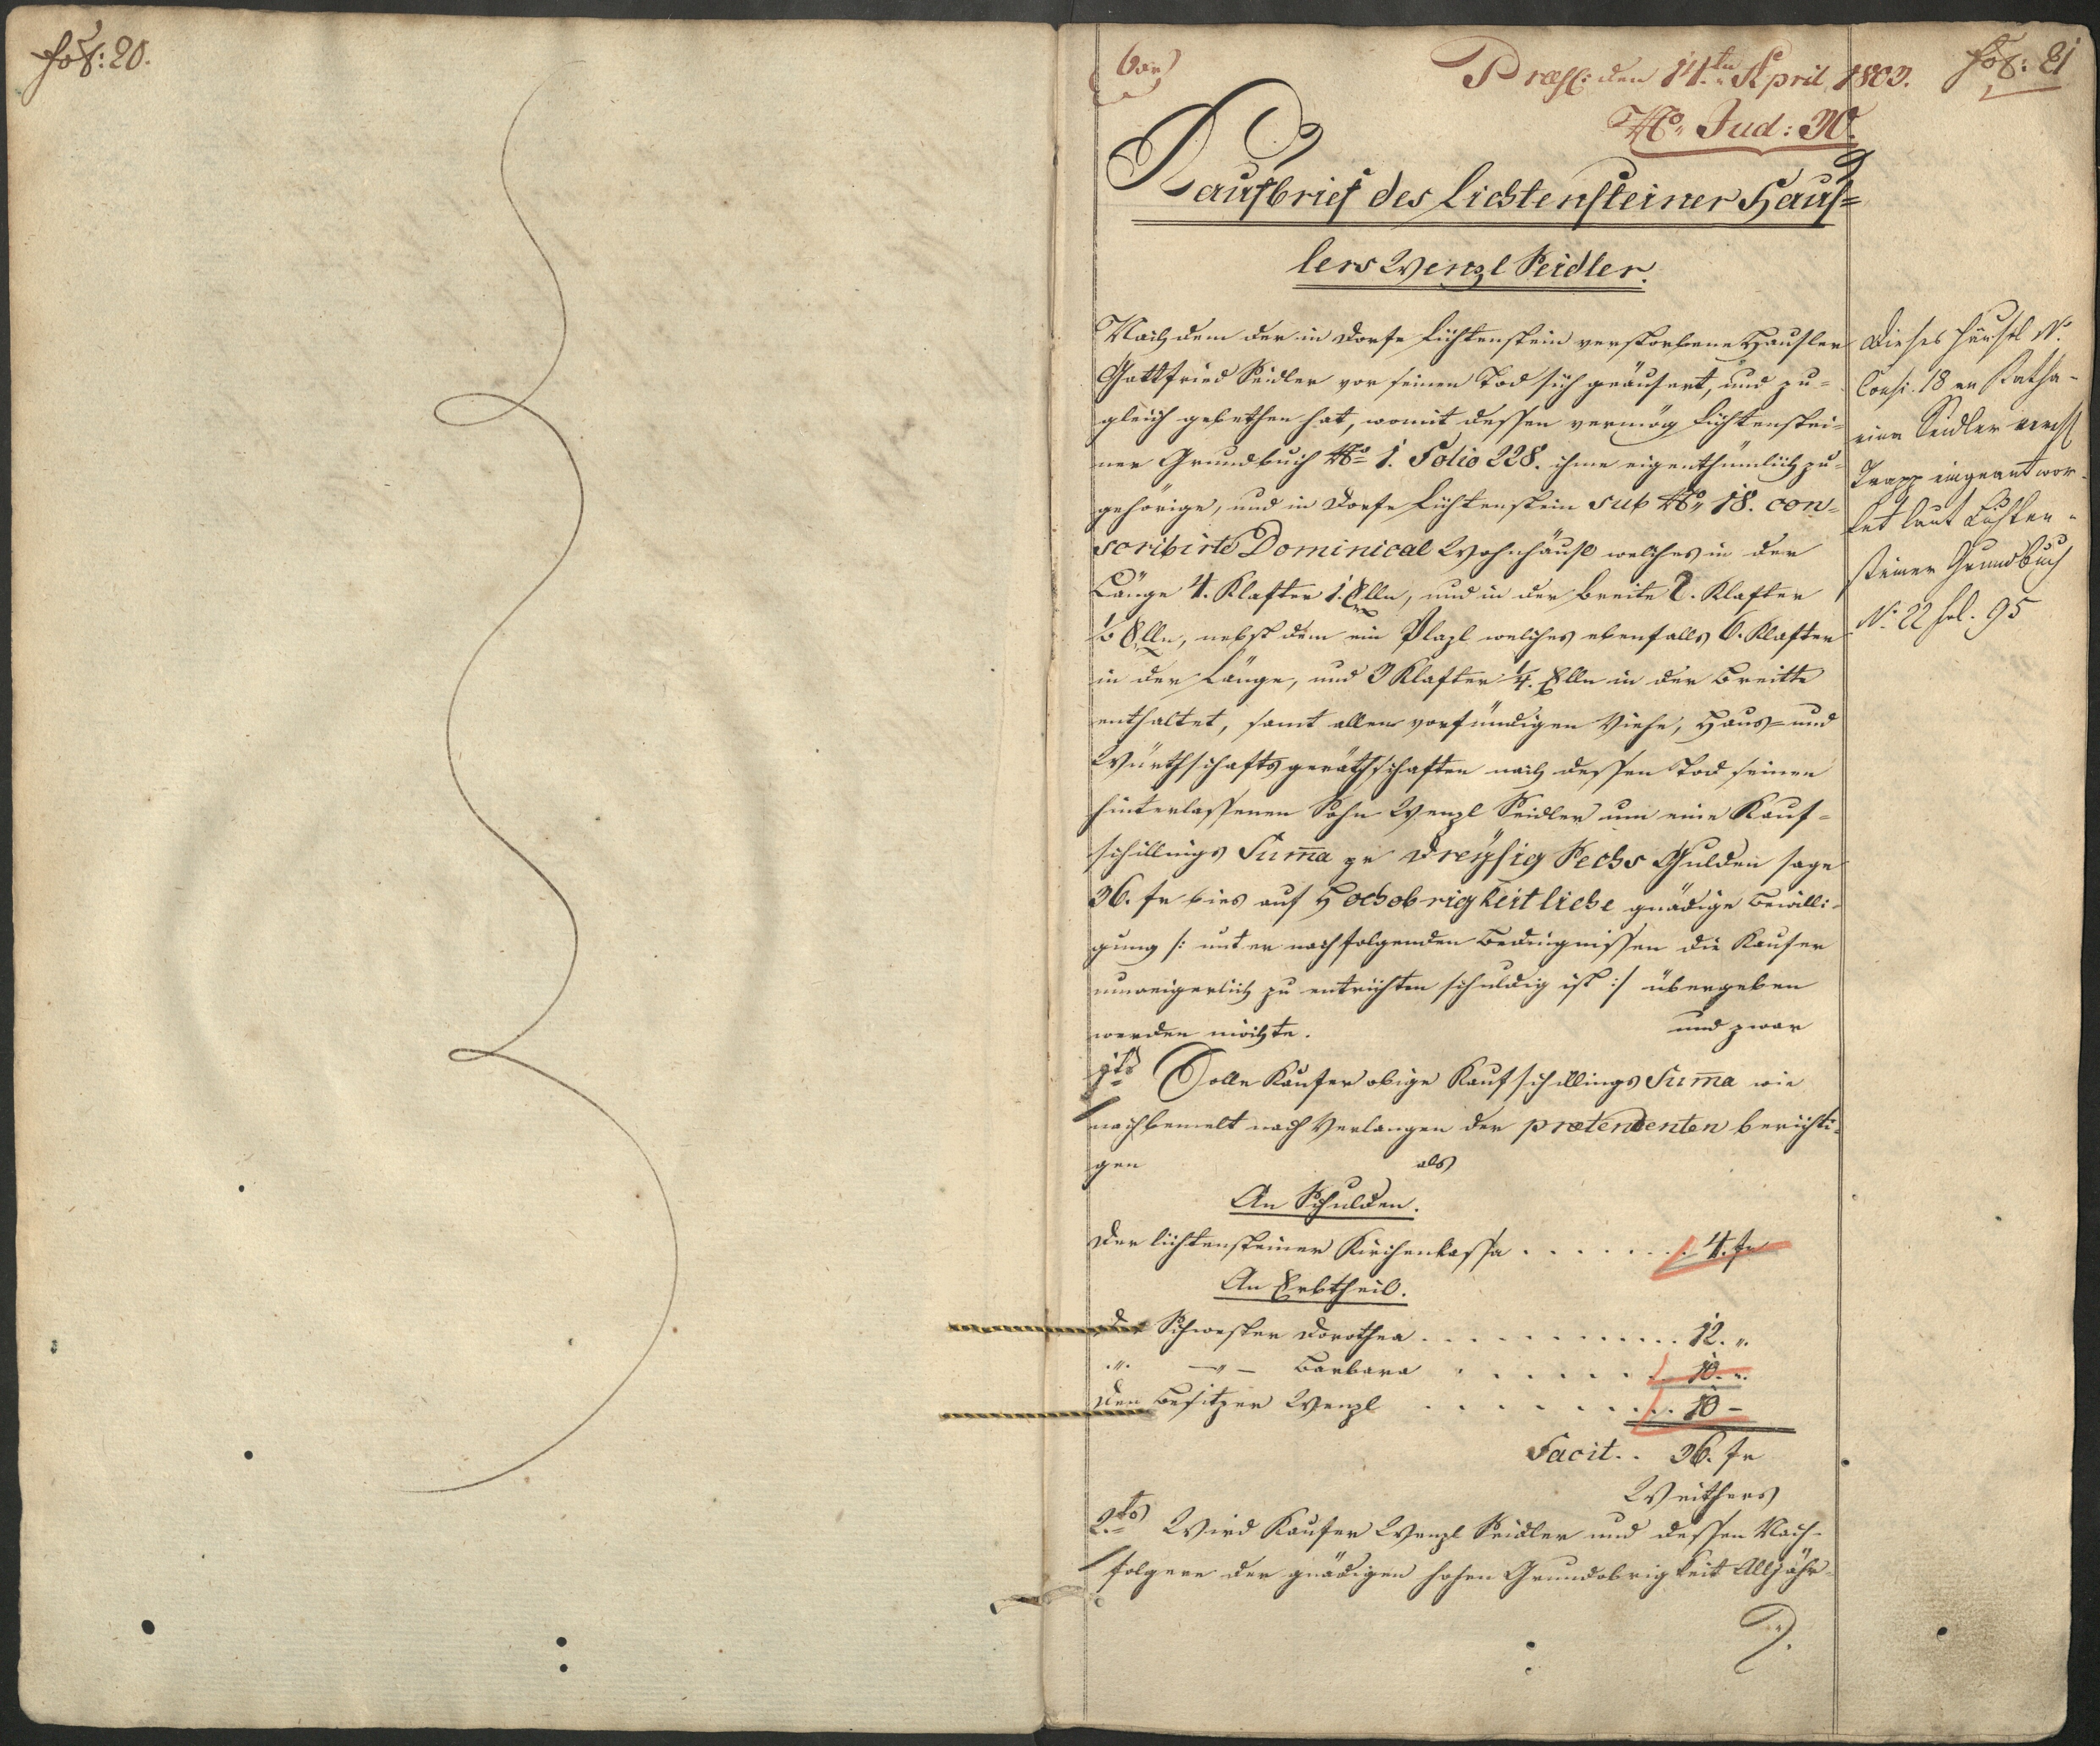 fol: 20.
Præs: den 14ten April 1803.
fol: 21
No. Jud: 30.
Kaufbrief des Lichtensteiner Haus=
lers Wenzl Seidler.
Nachdem der in Dorfe Lichtenstein verstorbene Hausler
Gottfried Seidler vor seinen Tod sich geäusert, und zu=
gleich gebethen hat, womit dessen vermög Lichtenstei=
ner Grundbuch No. 1. Folio 228. ihme eigenthümlich zu=
gehörige, und in Dorfe Lichtenstein sub No. 18. con=
scribirte Dominical Wohnhäusl welches in der
Länge 4. Klafter 1. Elln, und in der Breite 2. Klafter
Elln, nebst dem ein Plazl welches ebenfalls 6. Klafter
in der Länge, und 3 Klafter 1/4. Elln in der Breitte
enthaltet, samt allen vorfündigen Viehe, Haus= und
Würthschaftsgeräthschaften nach dessen Tod seinen
hinterlassenen Sohn Wenzl Seidler um eine Kauf=
schillings Suma pr Dreyßig Sechs Gulden sage
36. fr bies auf Hochobrigkeitliche gnädige Bewilli=
gung /: unter nachfolgenden Bedingnissen die Kaufer
unweigerlich zu entrichten schuldig ist :/ übergeben
werden möchte. und zwar
1tns Solle Kaufer obige Kaufschillings Suma wie
nachbemelt nach Verlangen der prætendenten berichti=
gen als
An Schulden.
Der lichtensteiner Kirchenkassa . . . . . . . 4. fr
An Erbtheil.
Der Schwester Dorothea . . . . . . . . . . . 12. "
" —"— Barbara . . . . . . . 10. "
Den Besitzer Wenzl . . . . . . . . . 10 –
Facit . . 36. fr
Weithers
2tns Wird Kaufer Wenzl Seidler und dessen Nach=
folgere der gnädigen hohen Grundobrigkeit Alljähr=
Dieses Häusel N.
Consc. 18 an Katha=
rina Seidler
Trapp eingeantwor=
tet laut Lichten=
steiner Grundbuch
N. 22 fol. 95